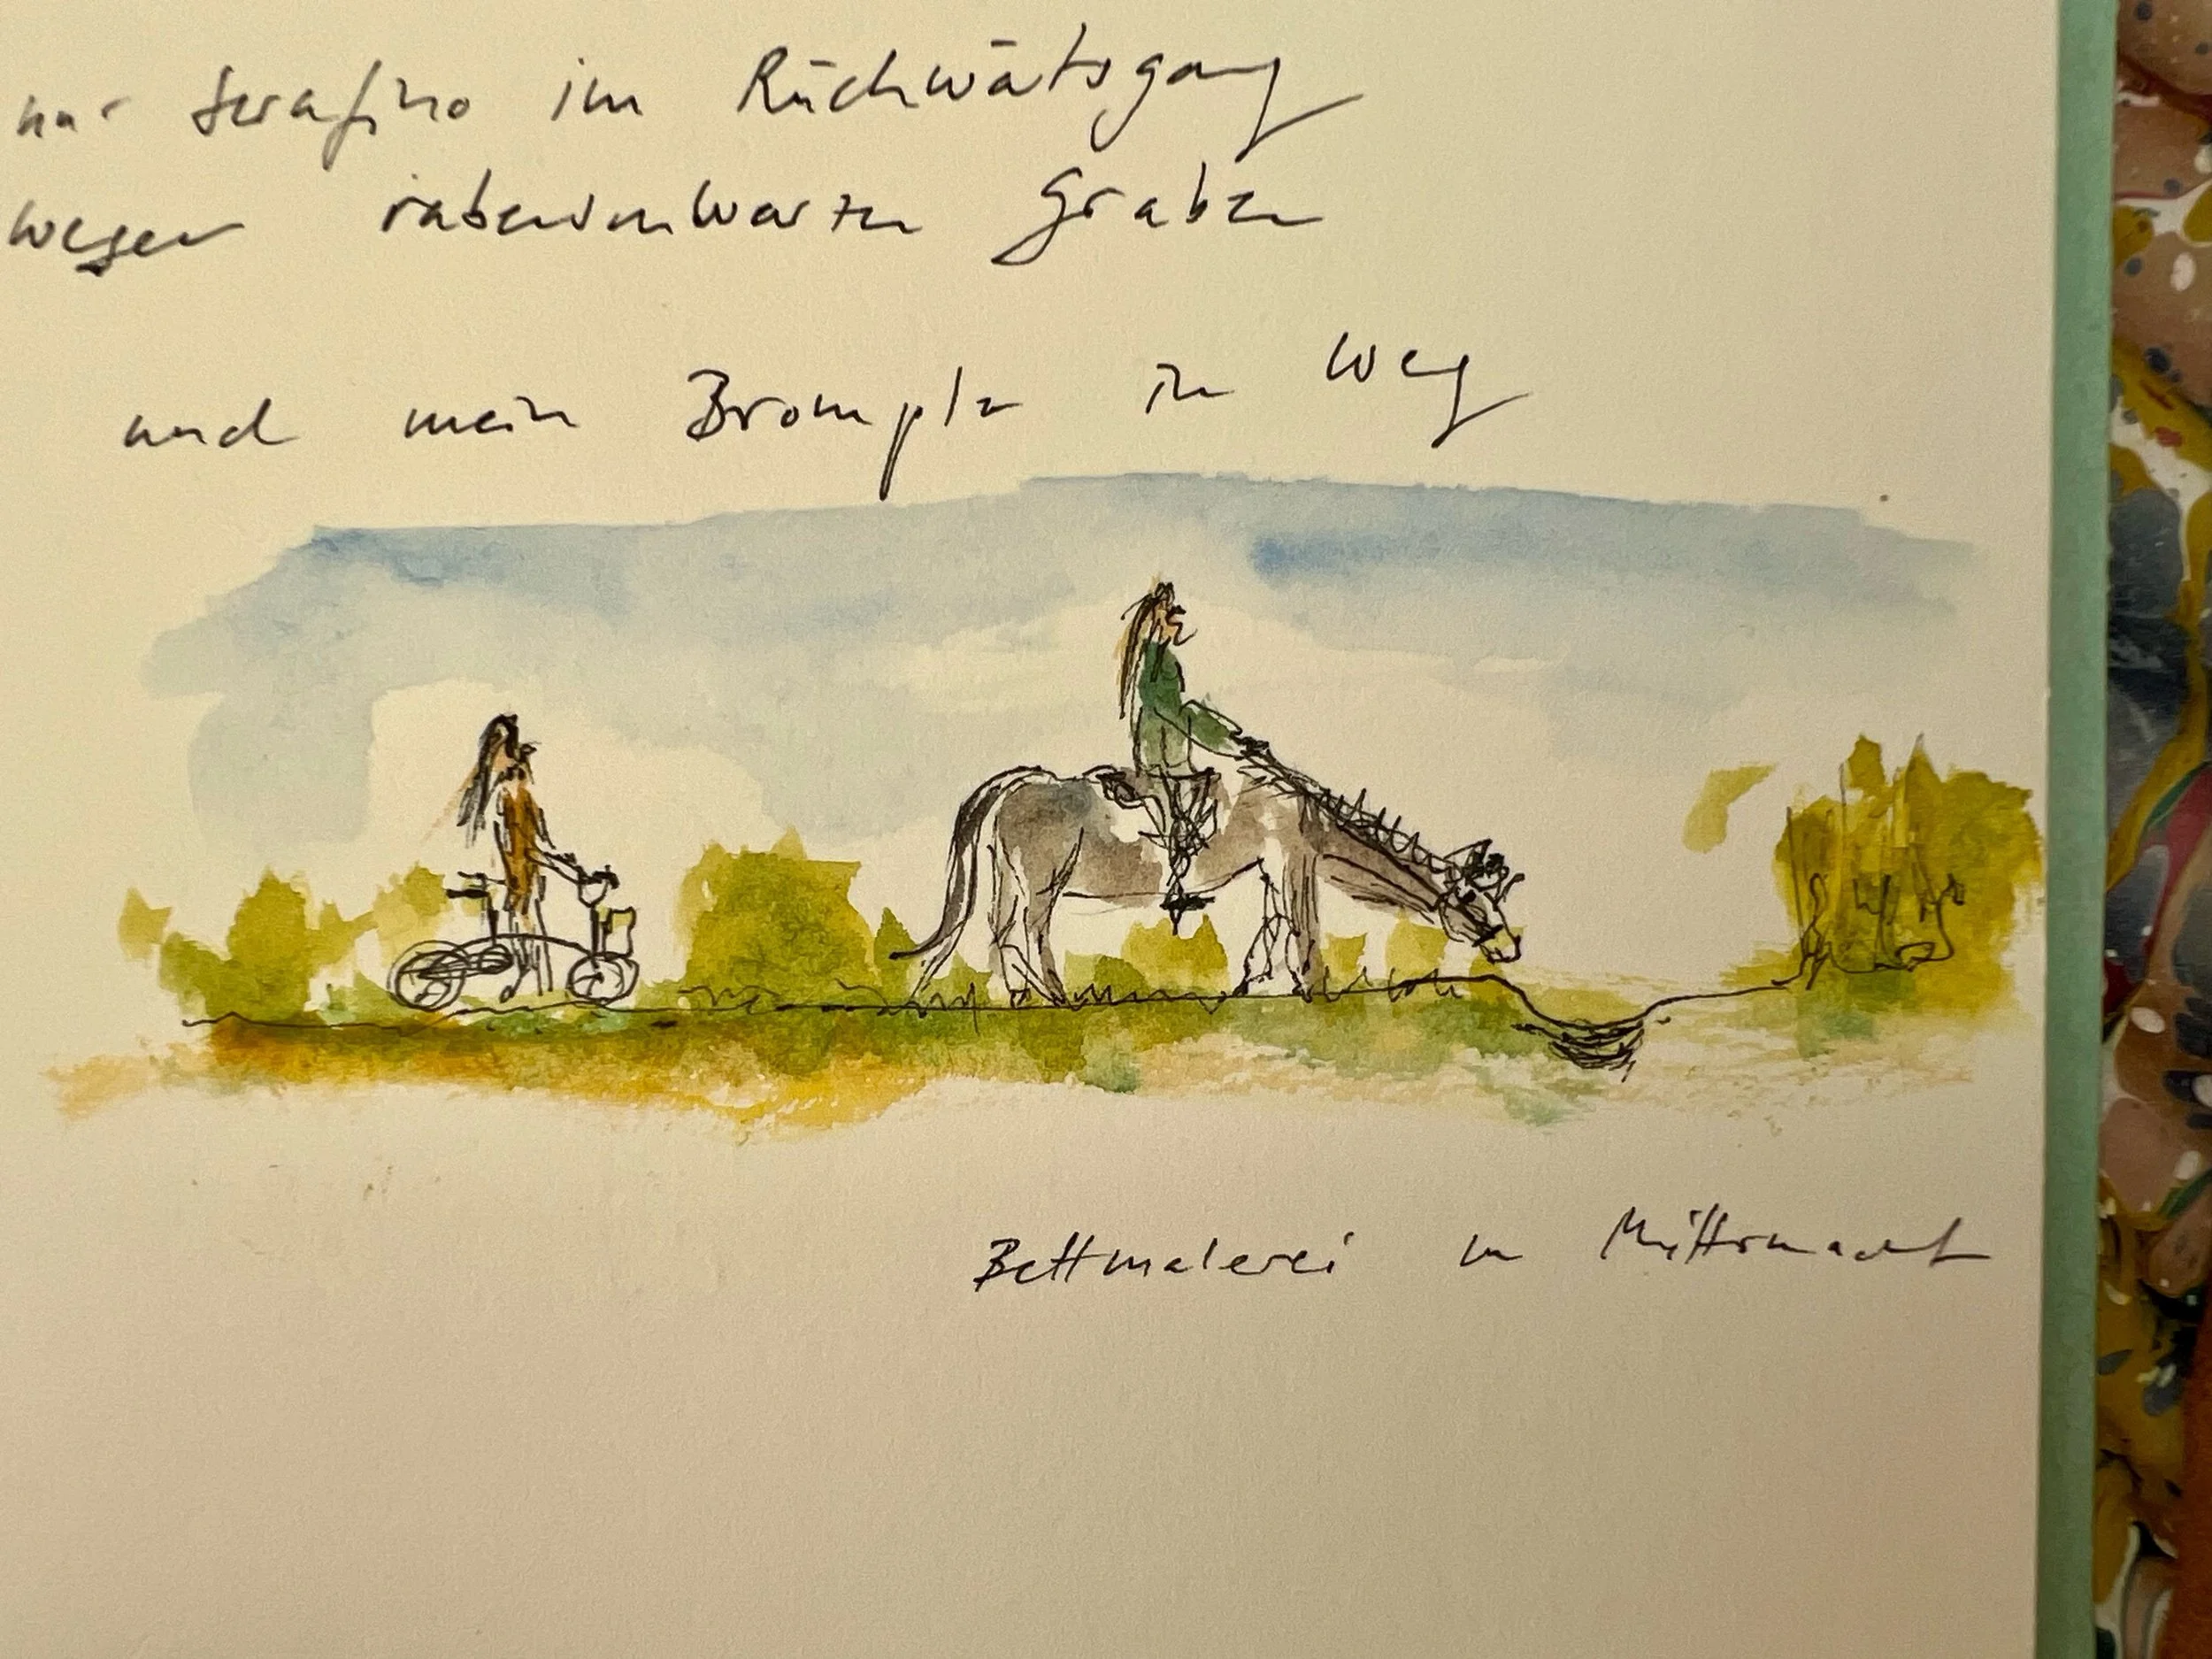 nur Serafino im Rückwärtsgang
wegen rabenschwarzen Graben
und mein Brompte im Weg
Bettmalerei um Mitternacht